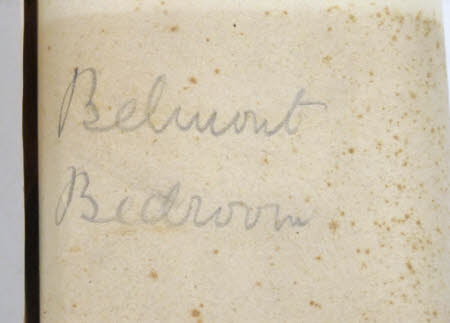 Belmont
Bedroom